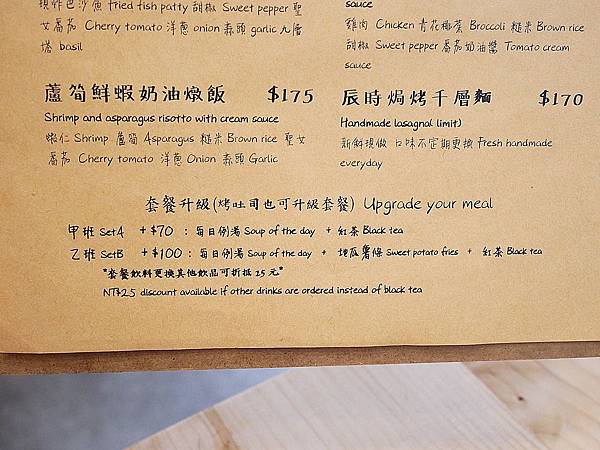 現炸巴沙魚 fried fish patty 胡椒 Sweet pepper 聖
女番茄 Cherry tomato 洋蔥 onion 蒜頭 garlic 九層
塔 basil
蘆筍鮮蝦奶油燉飯 $175
Shrimp and asparagus risotto with cream sauce
蝦仁 Shrimp 蘆筍 Asparagus 糙米 Brown rice 聖女
番茄 Cherry tomato 洋蔥 Onion 蒜頭 Garlic
sauce
雞肉 Chicken 青花椰菜 Broccoli 糙米 Brown rice
胡椒 Sweet pepper 番茄奶油醬 Tomato cream
sauce
辰時焗烤千層麵 $170
Handmade lasagna( limit)
新鮮現做 口味不定期更換 Fresh handmade
everyday
套餐升級(烤吐司也可升級套餐) Upgrade your meal
甲班 Set A +$70 : 每日例湯 Soup of the day + 紅茶 Black tea
乙班 Set B +$100 : 每日例湯 Soup of the day + 地瓜薯條 Sweet potato fries + 紅茶 Black tea
*套餐飲料更換其他飲品可折抵25元*
NT$25 discount available if other drinks are ordered instead of black tea